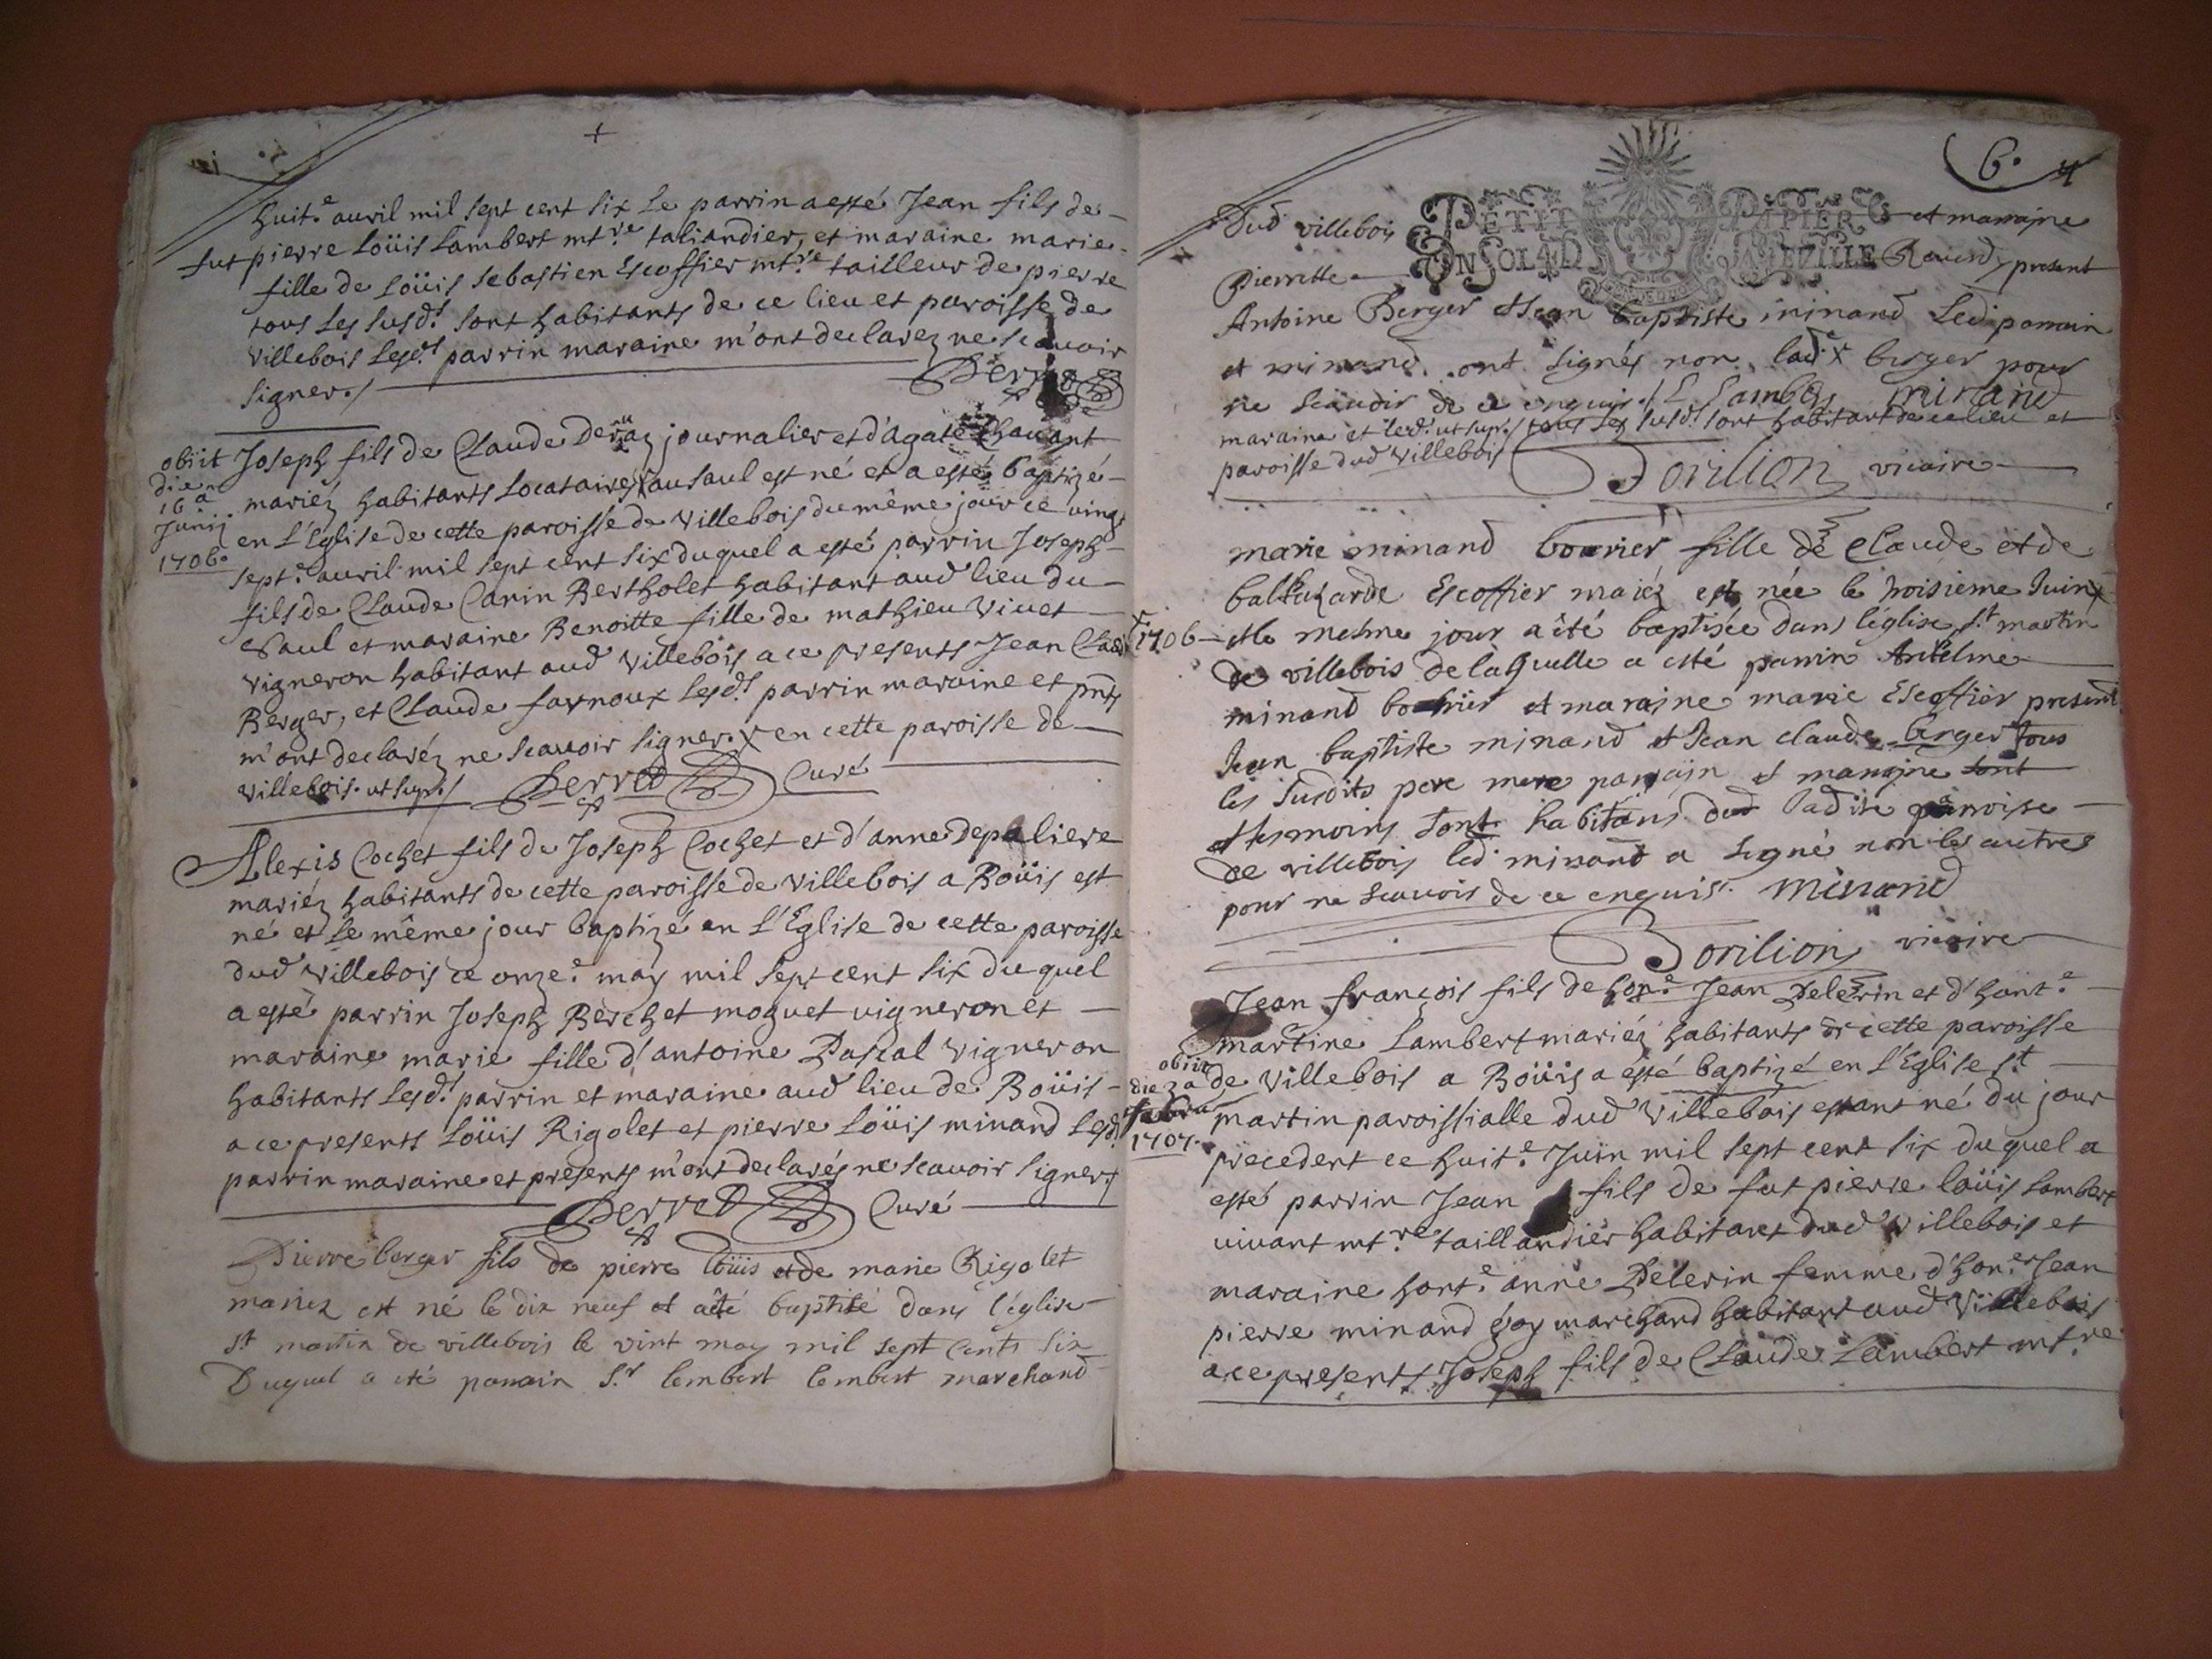 +
huit.e auril mil sept cent six Le parrin a esté Jean fils de
fut pierre Loüis Lambert mt.re taliandier, et maraine marie
fille de Loüis sebastien Escoffier mt.re tailleur de pierre
tous Les susd.s sont habitants de ce lieu et paroisse de
villebois Lesd.s parrin maraine m'ont declarez ne scauoir
signer./
Joseph fils de Claude Deruaz journalier et d'agate Chauant
mariez habitants Locataires au saul est né et a esté baptizé
en L'Eglise de cette paroisse de villebois du même jour ce vingt
sept.e auril mil sept cent six duquel a esté parrin Joseph
fils de Claude Canin Bertholet habitant aud lieu du
saul et maraine Benoitte fille de mathieu viuet
vigneron habitant aud villebois a ce presents Jean Claude
Berger, et Claude favnoux Lesd.s parrin maraine et pnts
m'ont declaréz ne scauoir signer. x en cette paroisse de
villebois. ut supr./ Perret Curé
obiit
die
16a
Junij
1706.
Alexis Cochet fils de Joseph Cochet et d'anne depaliere
mariéz habitants de cette paroisse de villebois a Boüis est
né et Le même jour baptizé en L'Eglise de cette paroisse
dud villebois ce onze.e may mil sept cent six duquel
a esté parrin Joseph Berchet moguet vigneron et
maraine marie fille d'antoine Pascal vigneron
habitants Lesd.s parrin et maraine aud lieu de Boüis
a ce presents Loüis Rigolet et pierre Loüis minand Lesd.s
parrin maraine et presents m'ont declarés ne scauoir signer
Perret Curé
Pierre berger fils de pierre loüis et de marie Rigolet
mariez est né le dix neuf et a été baptisé dans l'église
st martin de villebois le vint may mil sept cents six
Duquel a eté parrain S.r lembert lembert marchand
6.
PETIT PAPIER
UN SOL 4 D LA FEUILLE
Dud villebois et marraine
Pierrette Rauerd, present
Antoine Berger et Jean baptiste minand Led parrain
et minand ont signés non lad.e x berger pour
ne scauoir de ce enquis./ L Lambert minand
maraine et led. ut supr./ tous Les susd.s sont habitant de ce lieu et
paroisse dud villebois
Borilion vicaire
marie minand bouvier fille de Claude et de
balthazarde Escoffier mariéz est née le troisieme Juin x
x 1706 et le mesme jour a été baptisée dans l'église st martin
de villebois de laquelle a esté parrin Antelme
minand bouvier et maraine marie Escoffier present
Jean baptiste minand et Jean claude berger tous
les susdits pere mere parrain et maraine sont
et tesmoins sont habitans dud ladite paroisse
de villebois led minand a signé non les autres
pour ne scauoir de ce enquis. minand
Borilion vicaire
Jean françois fils de hon.e Jean Pelerin et d'hont.e
martine Lambert mariéz habitants de cette paroisse
de villebois a Boüis a esté baptizé en L'Eglise st
martin paroissialle dud villebois estant né du jour
precedent ce huit.e Juin mil sept cent six duquel a
esté parrin Jean fils de fut pierre loüis Lambert
viuant mt.re taillandier habitant dud villebois et
maraine hont.e anne Pelerin femme d'hon.e Jean
pierre minand goy marchand habitant aud villebois
a ce presents Joseph fils de Claude Lambert mt.re
obiit
die 2a
febru
1707.